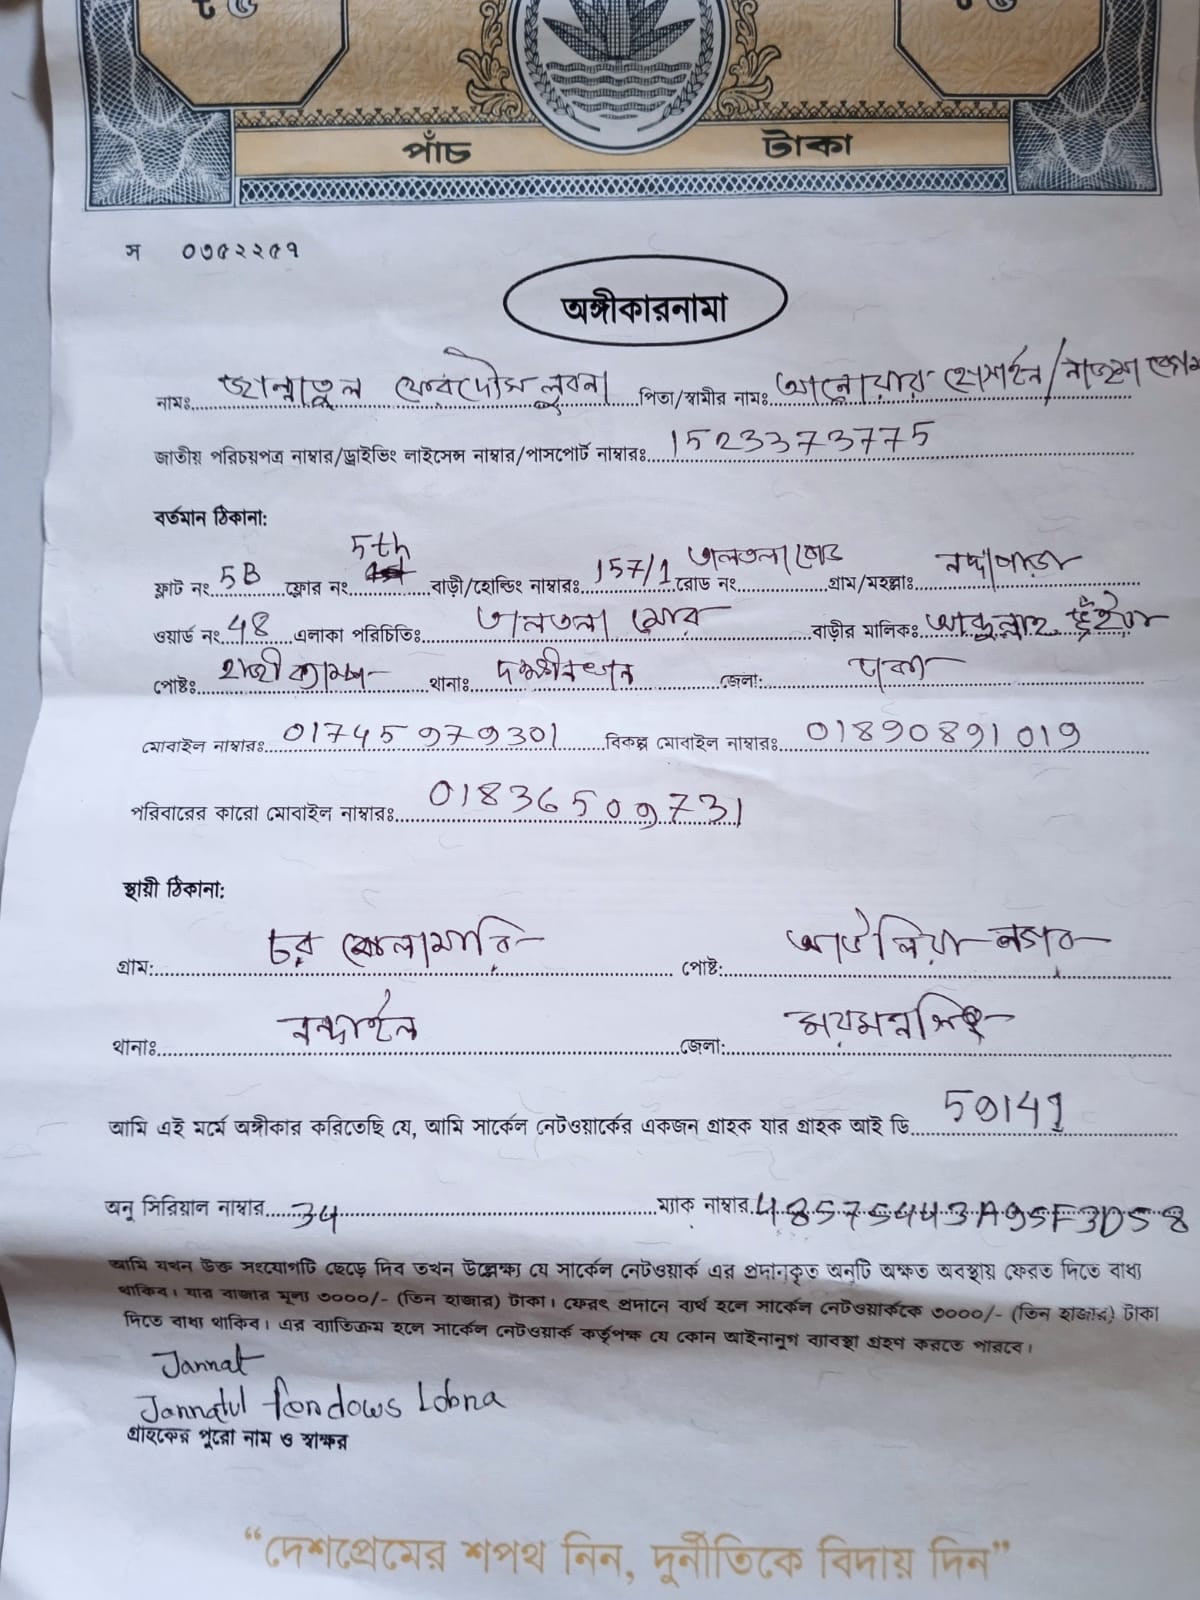 পাঁচ টাকা
স ০৩৫২২৫৭
অঙ্গীকারনামা
নামঃ জান্নাতুল ফেরদৌস লুবনা পিতা/স্বামীর নামঃ আনোয়ার হোসাইন/নাজমা বেগম
জাতীয় পরিচয়পত্র নাম্বার/ড্রাইভিং লাইসেন্স নাম্বার/পাসপোর্ট নাম্বারঃ 1523373775
বর্তমান ঠিকানা:
ফ্লাট নং 5B ফ্লোর নং 5th বাড়ী/হোল্ডিং নাম্বারঃ 157/1 রোড নং তালতলা রোড গ্রাম/মহল্লাঃ নদ্দাপাড়া
ওয়ার্ড নং 48 এলাকা পরিচিতিঃ তালতলা মোর বাড়ীর মালিকঃ ভুঁইয়া
পোষ্টঃ হাজী ক্যাম্প থানাঃ দক্ষীনখান জেলা: ঢাকা
মোবাইল নাম্বারঃ 01745979301 বিকল্প মোবাইল নাম্বারঃ 01890891019
পরিবারের কারো মোবাইল নাম্বারঃ 01836509731
স্থায়ী ঠিকানা:
গ্রাম: চর পোষ্ট: আউলিয়া নগর
থানাঃ নান্দাইল জেলা: ময়মনসিংহ
আমি এই মর্মে অঙ্গীকার করিতেছি যে, আমি সার্কেল নেটওয়ার্কের একজন গ্রাহক যার গ্রাহক আই ডি 59141
অনু সিরিয়াল নাম্বার 34 ম্যাক নাম্বার 48575443A95F3D58
আমি যখন উক্ত সংযোগটি ছেড়ে দিব তখন উল্লেক্ষ্য যে সার্কেল নেটওয়ার্ক এর প্রদানকৃত অনুটি অক্ষত অবস্থায় ফেরত দিতে বাধ্য
থাকিব। যার বাজার মূল্য ৩০০০/- (তিন হাজার) টাকা। ফেরৎ প্রদানে ব্যর্থ হলে সার্কেল নেটওয়ার্ককে ৩০০০/- (তিন হাজার) টাকা
দিতে বাধ্য থাকিব। এর ব্যাতিক্রম হলে সার্কেল নেটওয়ার্ক কর্তৃপক্ষ যে কোন আইনানুগ ব্যাবস্থা গ্রহণ করতে পারবে।
Jannat
Jannatul ferdows Lobna
গ্রাহকের পুরো নাম ও স্বাক্ষর
“দেশপ্রেমের শপথ নিন, দুর্নীতিকে বিদায় দিন”